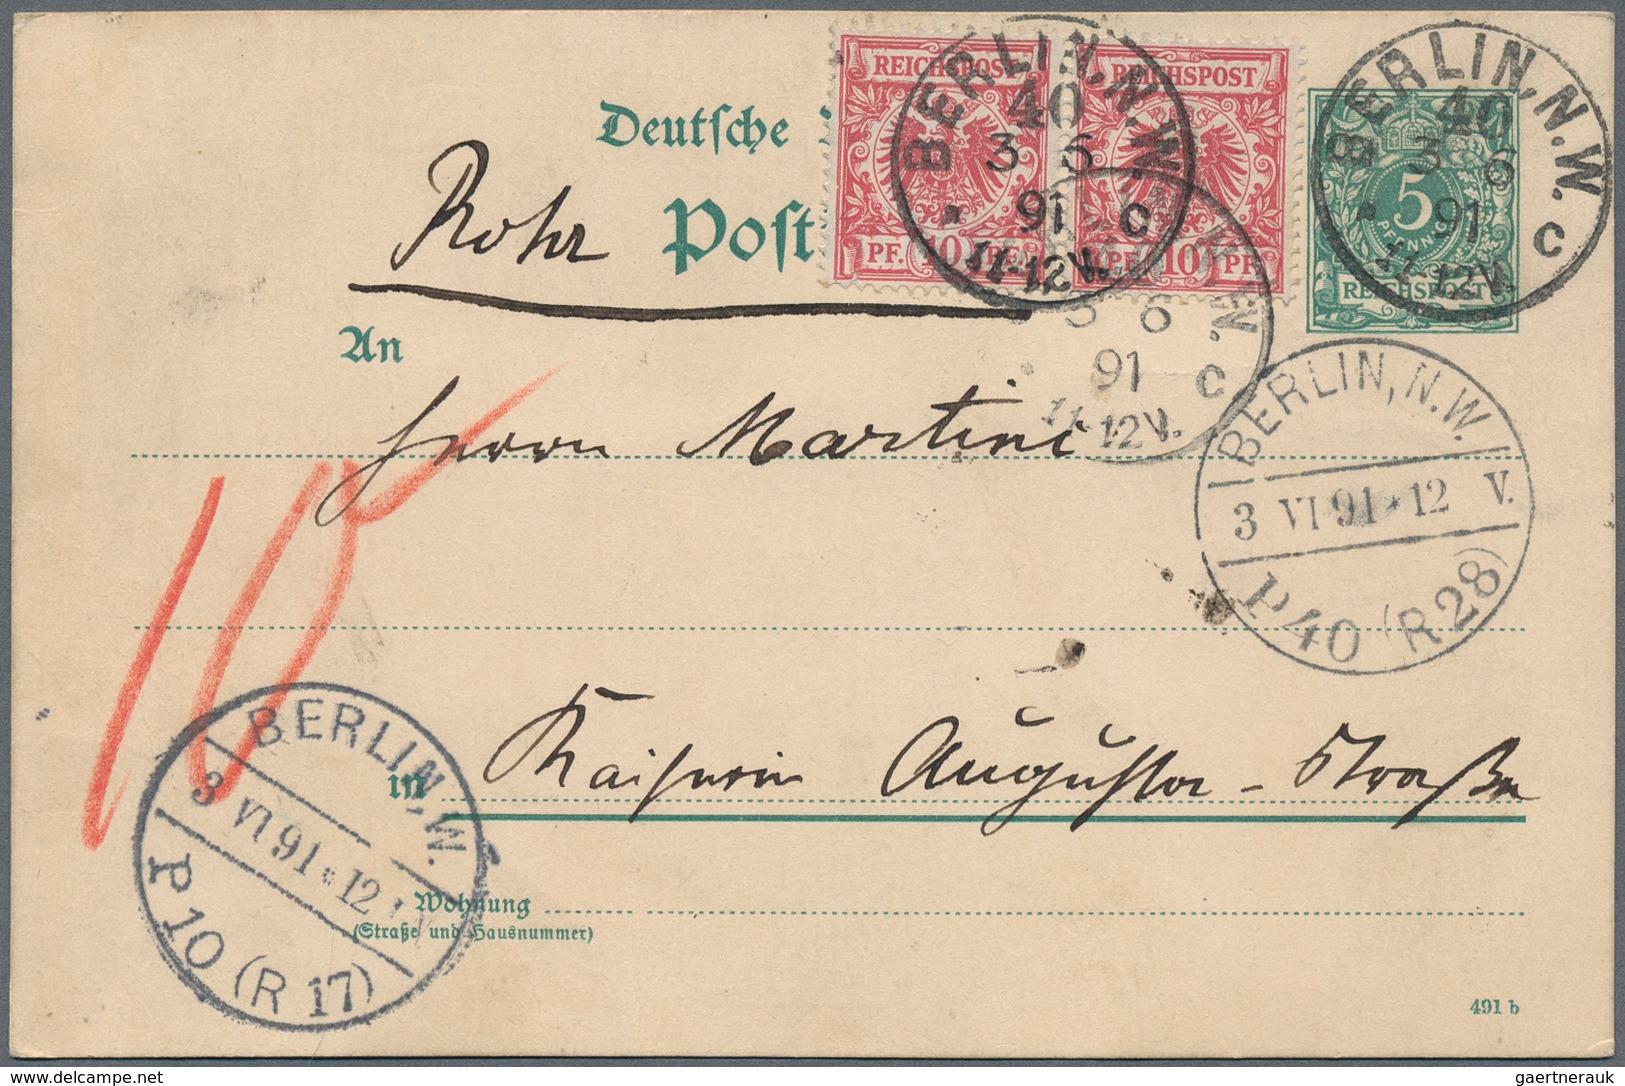 Deutsche
Post
Rohr
REICHSPOST
PF. 10 PF.
REICHSPOST
PF. 10 PF.
5
PFENNIG
REICHSPOST
BERLIN, N.W.
40
3 6
91
11-12V.
* c
BERLIN, N.W.
40
3 6
91
11-12V.
* c
3 6
91 c
11-12V.
An
Herrn Martini
BERLIN, N.W.
3 VI 91 * 12 V.
P 40 (R 28)
in Kaiserin Augusta-Straße
10
BERLIN, W.
3 VI 91 * 12
P 10 (R 17)
Wohnung
(Straße und Hausnummer)
491 b
gaertnerauk / delcampe.net